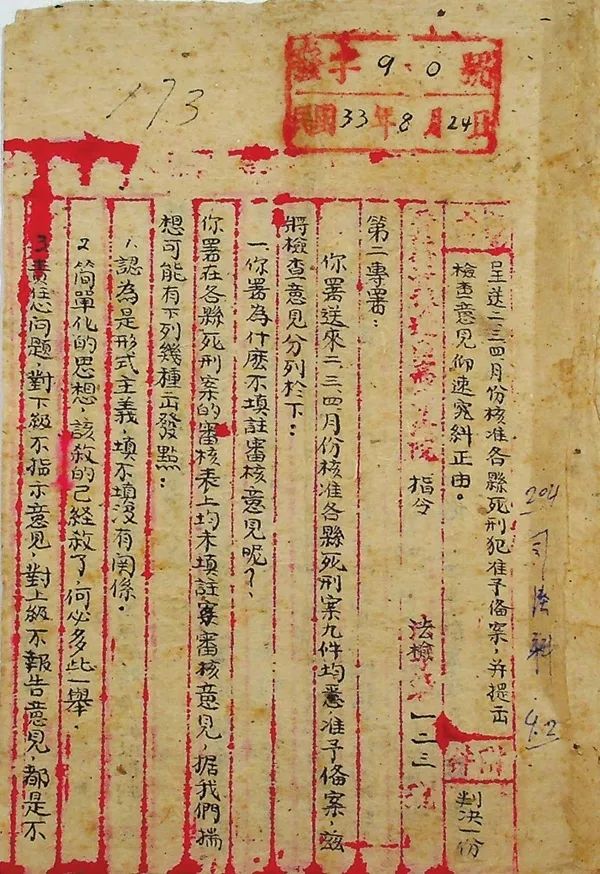 字 9 0 號
民國33年8月24日
173
204 司法科 9.2
呈送二三四月份核准各縣死刑犯准予備案,并提出
檢查意見仰速究糾正由。
附件
判決一份
指令 法檢字一二三號
第二專署:
你署送來二三四月份核准各縣死刑案九件均悉准予備案,茲
將檢查意見分列於下:
一 你署為什麼不填註審核意見呢?
你署在各縣死刑案的審核表上均未填註審核意見,据我們揣
想可能有下列幾種出發點:
1、認為是形式主義,填不填沒有関係。
2 簡單化的思想,該殺的已經殺了,何必多此一舉.
3 責任問題,對下級不指示意見,對上級不報告意見,都是不